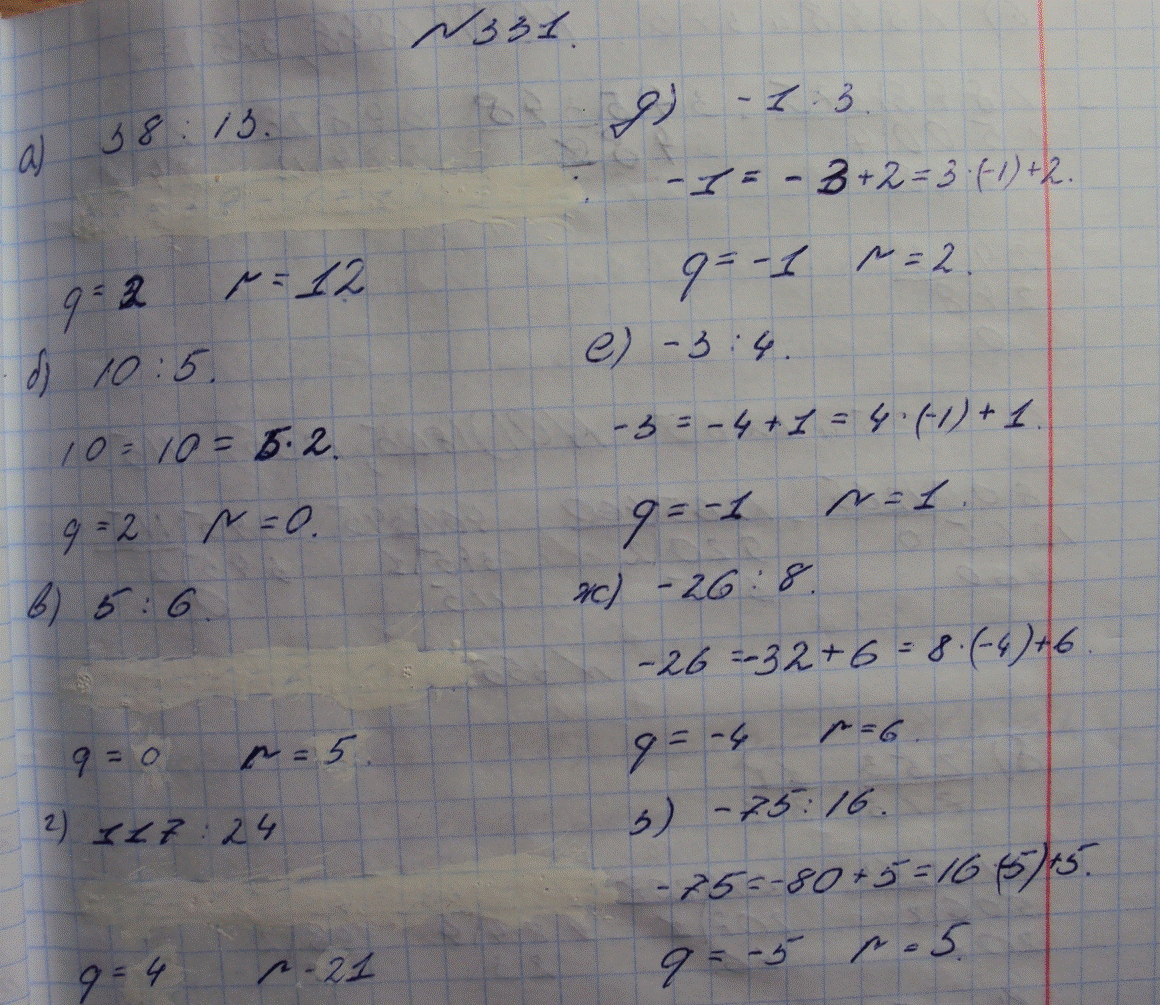 №331.
а) 38 : 13.
q = 2 r = 12
б) 10 : 5.
10 = 10 = 5·2.
q = 2 r = 0.
в) 5 : 6.
q = 0 r = 5.
г) 117 : 24
q = 4 r - 21
д) -1 : 3.
-1 = -3 + 2 = 3·(-1) + 2.
q = -1 r = 2.
е) -3 : 4.
-3 = -4 + 1 = 4·(-1) + 1.
q = -1 r = 1.
ж) -26 : 8.
-26 = -32 + 6 = 8·(-4) + 6.
q = -4 r = 6.
з) -75 : 16.
-75 = -80 + 5 = 16(-5) + 5.
q = -5 r = 5.